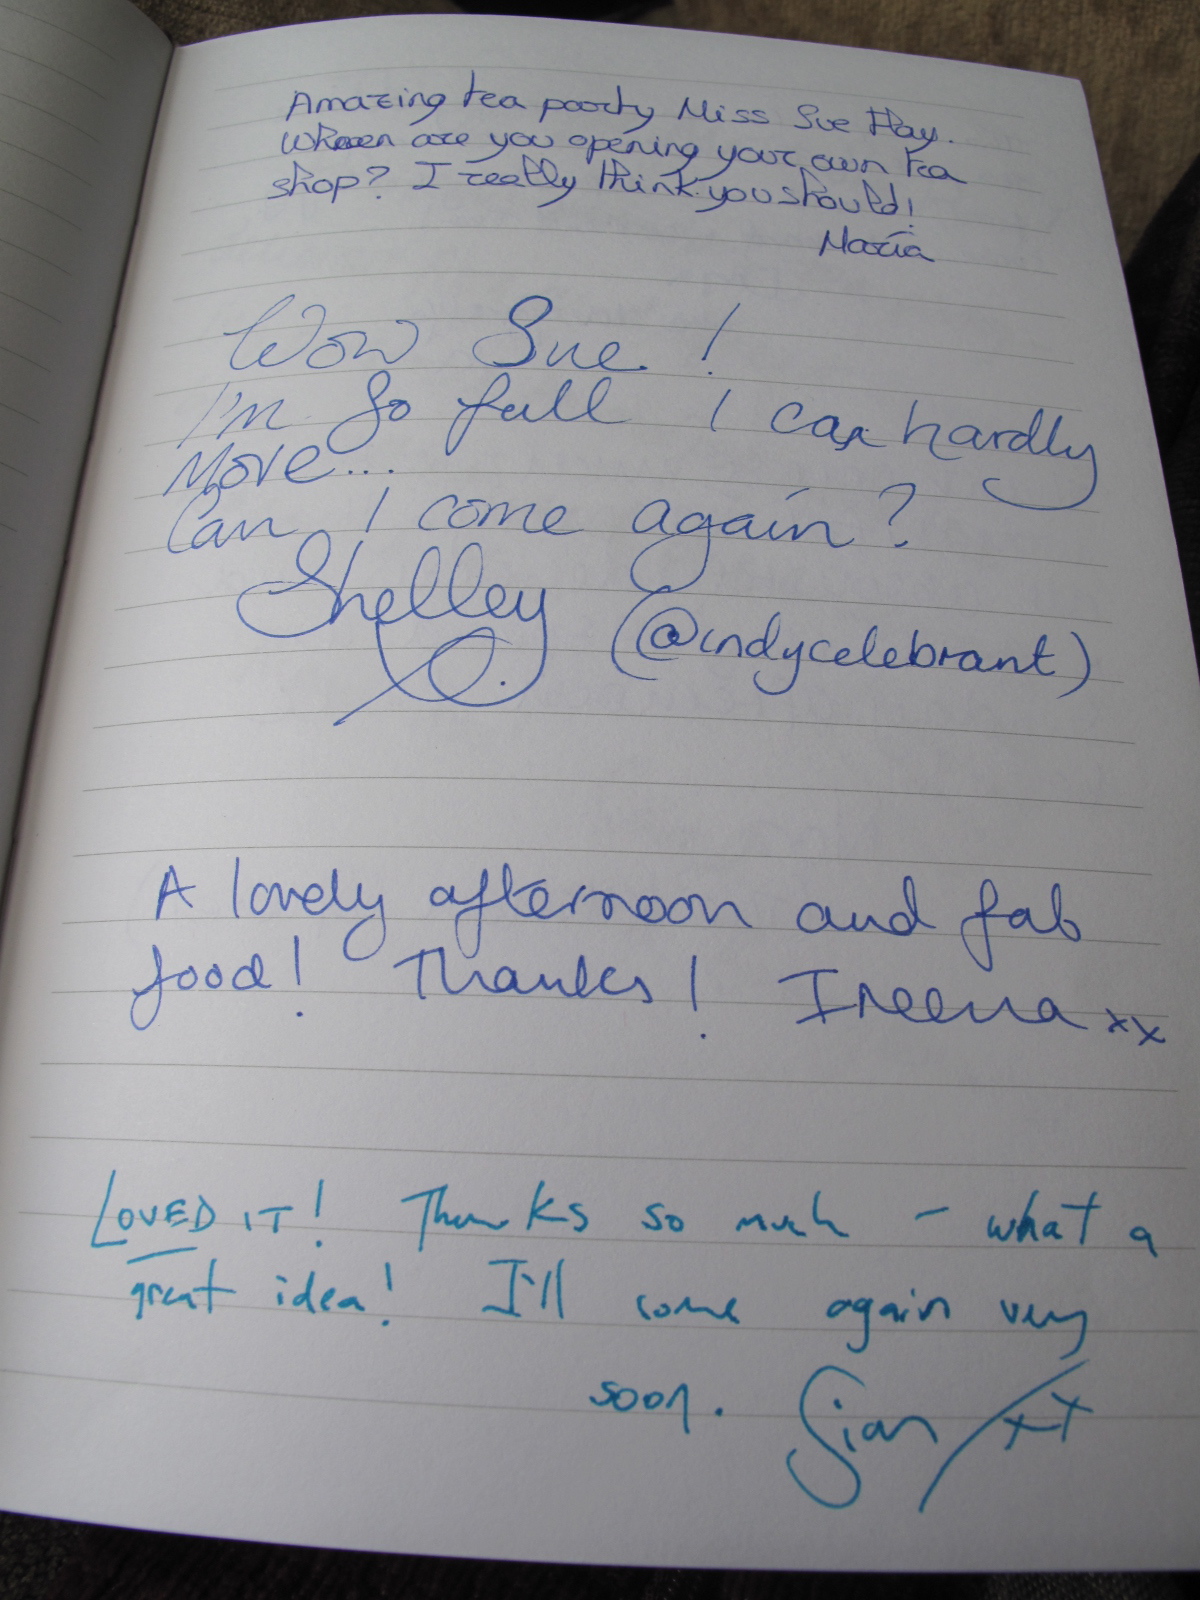 Amazing tea party Miss Sue Hay.
When are you opening your own tea
shop? I really think you should!
Maria
Wow Sue!
I'm so full I can hardly
Move...
Can I come again?
Shelley (@indycelebrant)
A lovely afternoon and fab
food! Thanks! Ireena xx
LOVED IT! Thanks so much - what a
great idea! I'll come again very
soon. Sian xx